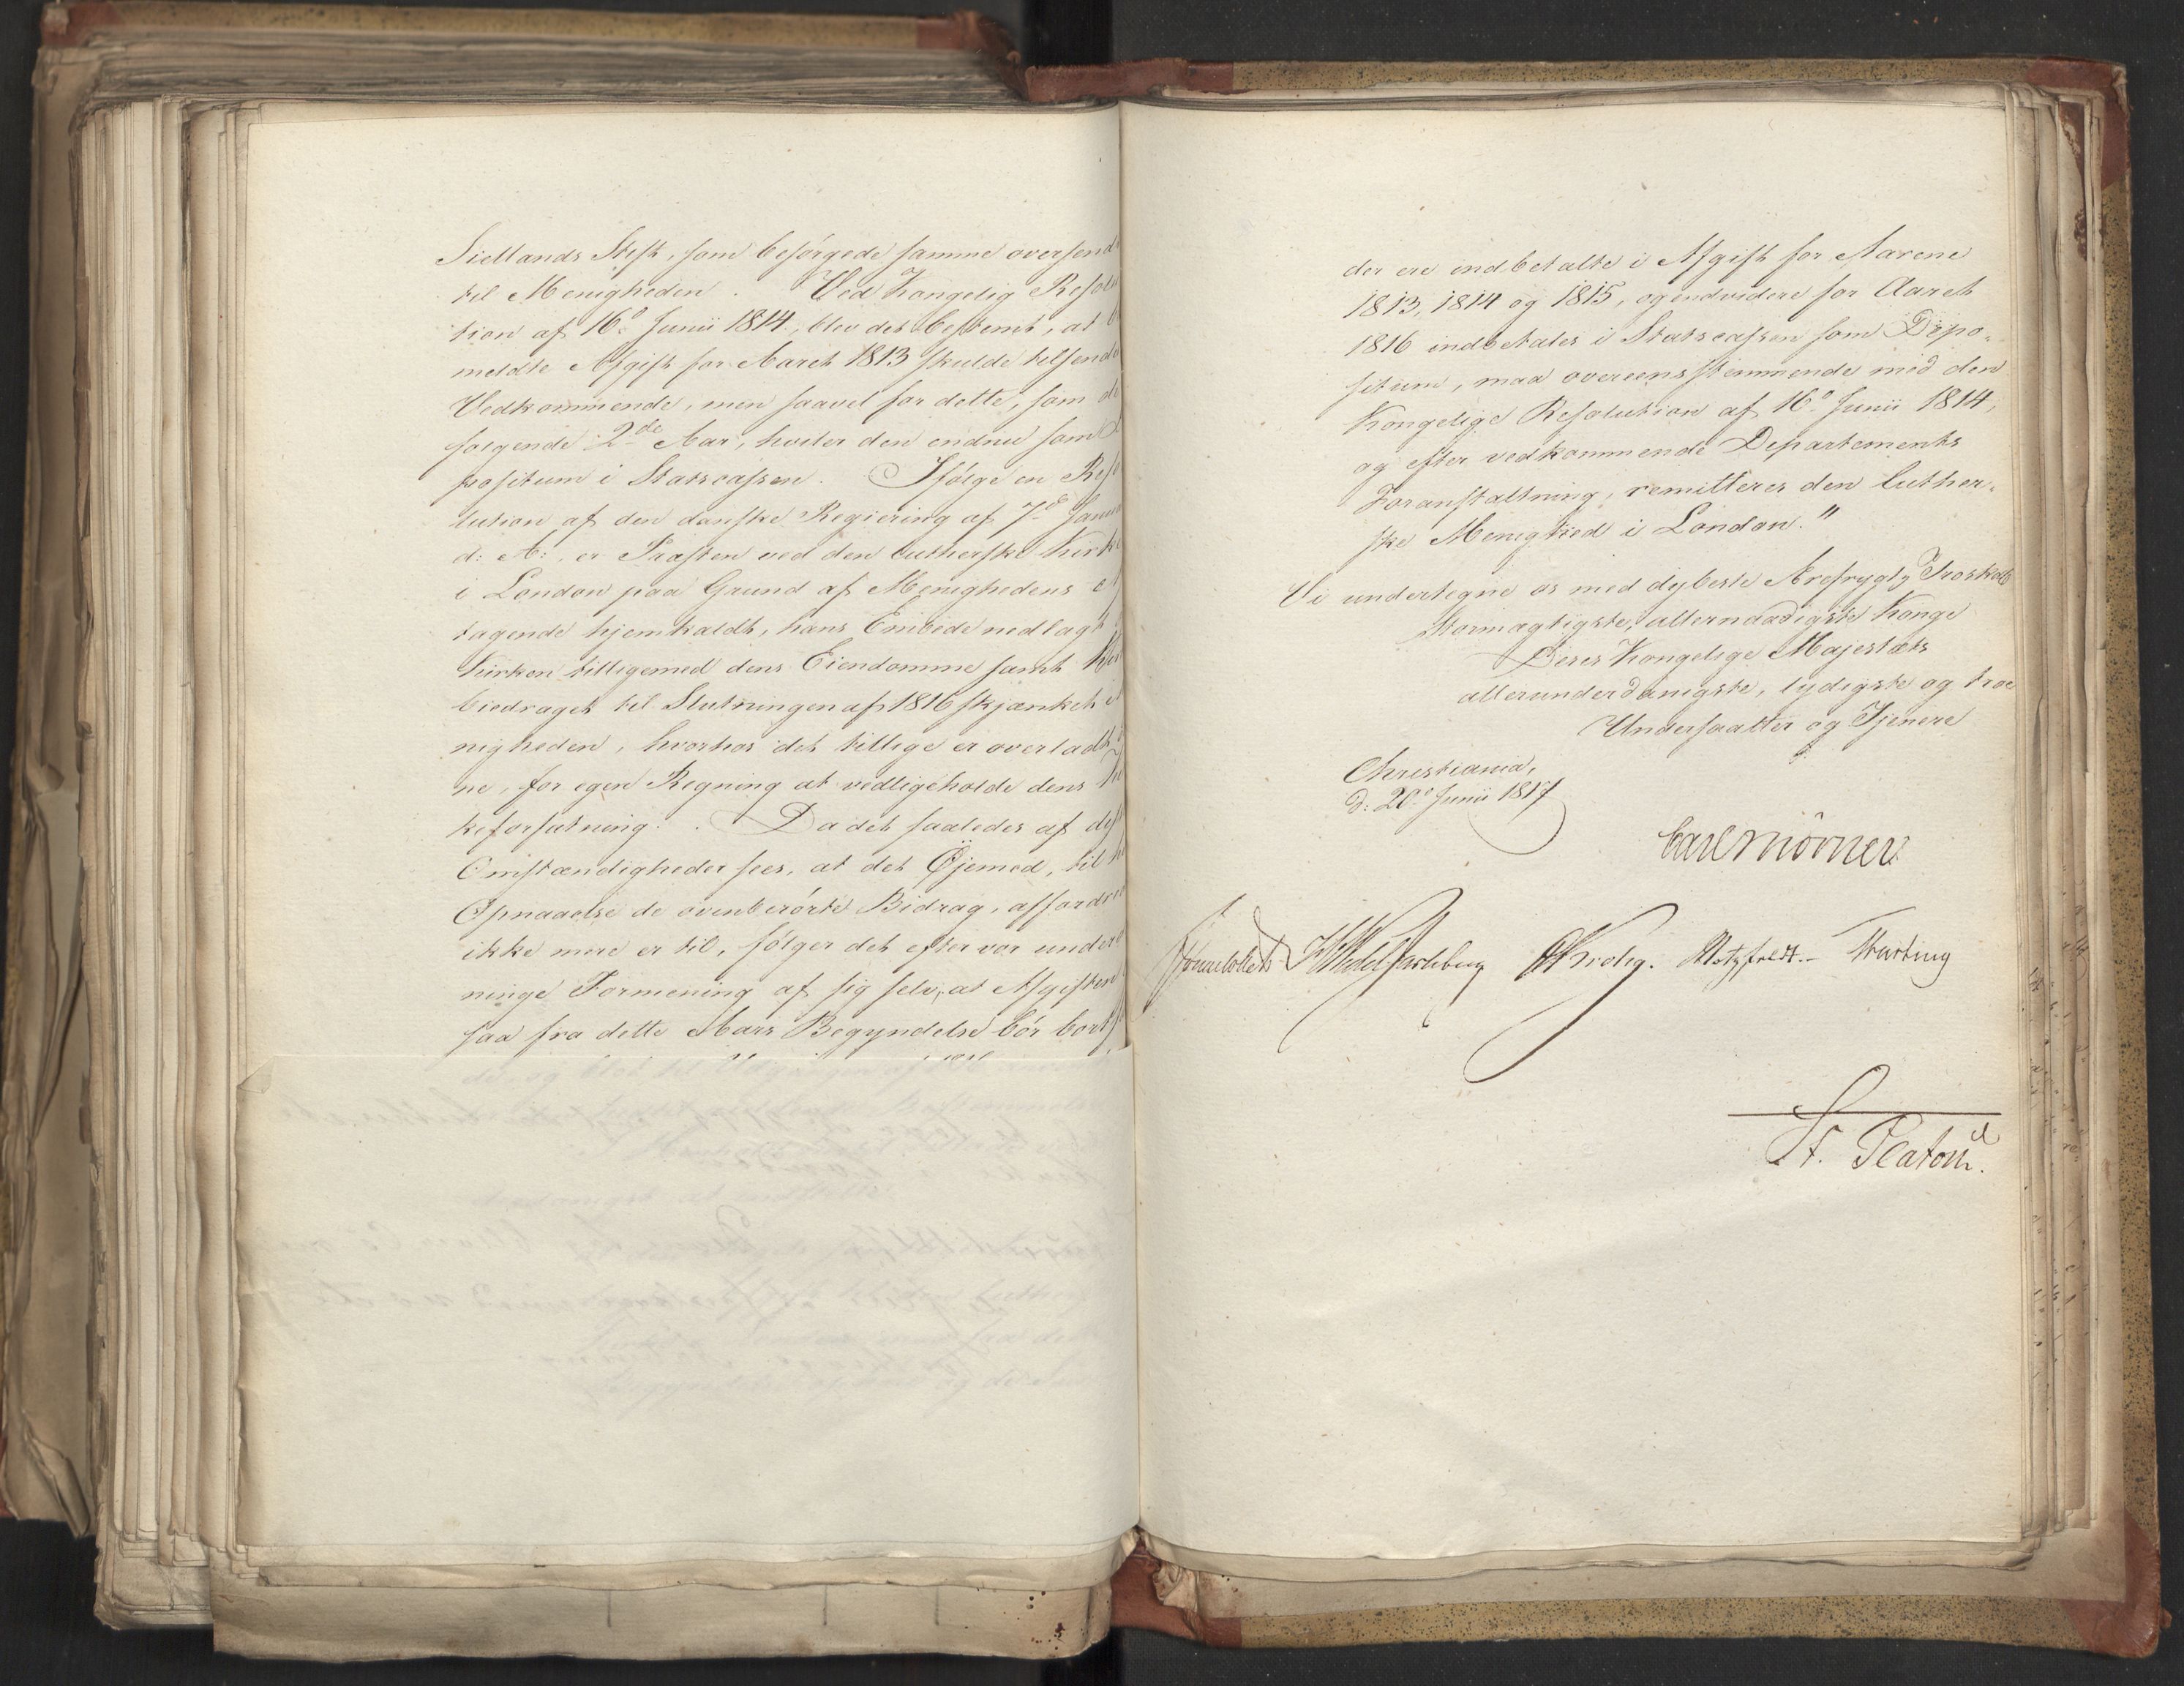 Siellands Stift, som besörgede samme oversend
til Menigheden. Ved Kongelig Resolu
tion af 16.º Junii 1814, blev det bestemt, at be
meldte Afgift for Aaret 1813 skulde tilsende
Vedkommende, men saavel for dette, som de
følgende 2de Aar, hviler den endnu som
positum i Statscassen. Ifølge en Reso
lution af den danske Regiering af 7.d Janu
d: A:, er Præsten ved den lutherske Kirke
i London paa Grund af Menighedens
tagende hjemkaldt, hans Embede nedlagt
Kirken tilligemed dens Eiendomme samt
bidraget til Slutningen af 1816 skjænket
nigheden, hvorhos det tillige er overladt
ne, for egen Regning at vedligeholde dens
keforfatning. Da det saaledes af
Omstændigheder sees, at det Øjemed, til
Opnaaelse de ovenberörte Bidrag, affordre
ikke mere er til, følger det efter vor under
ninge Formening af sig selv, at Afgiften
saa fra dette Aars Begyndelse bör
der ere indbetalte i Afgift for Aarene
1813, 1814 og 1815, og endvidere for Aaret
1816 indbetales i Statscassen som Depo-
situm, maa overeensstemmende med den
Kongelige Resolution af 16.º Junii 1814,
og efter vedkommende Departements
Foranstaltning, remitteres den luther-
ske Menighed i London."
Vi undertegne os med dybeste Ærefrygt, Troskab
Stormægtigste, allernaadigste Konge
Deres Kongelige Majestæts
allerunderdanigste, lydigste og troe
Undersaatter og Tjenere
Christiania,
d: 20.º Junii 1817
Carl Mörner
Sommerhielm HWedel Jarlsberg Krohg. Motzfeldt.- Thaulow
St. Platou